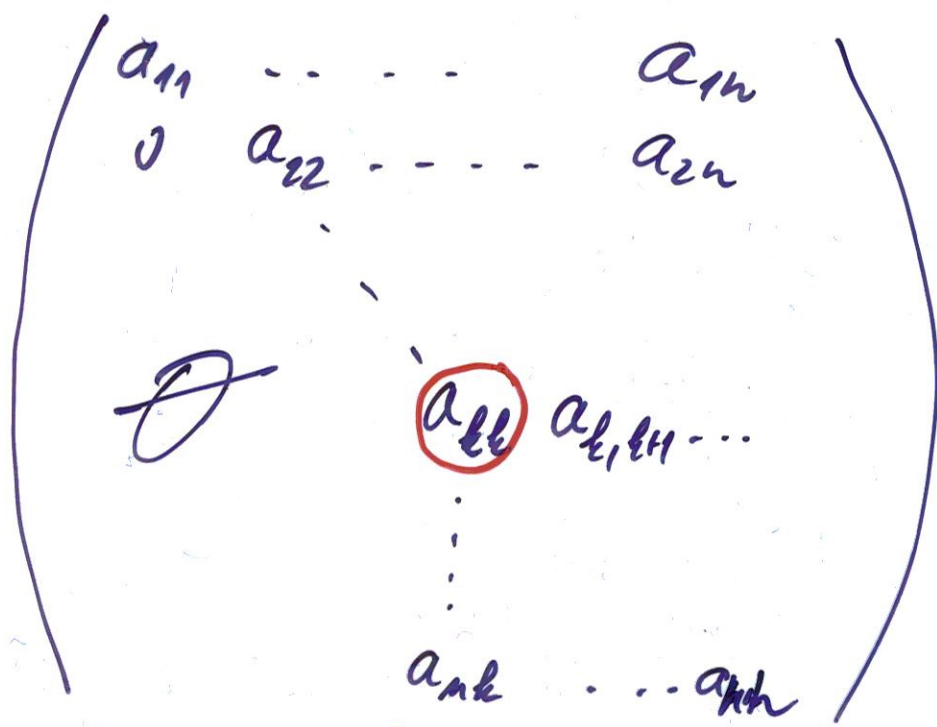 a₁₁ - - - - a₁ₙ
0 a₂₂ - - - - a₂ₙ
0 aₖₖ aₖ,ₖ₊₁ ...
aₙₖ . ... aₙₙ